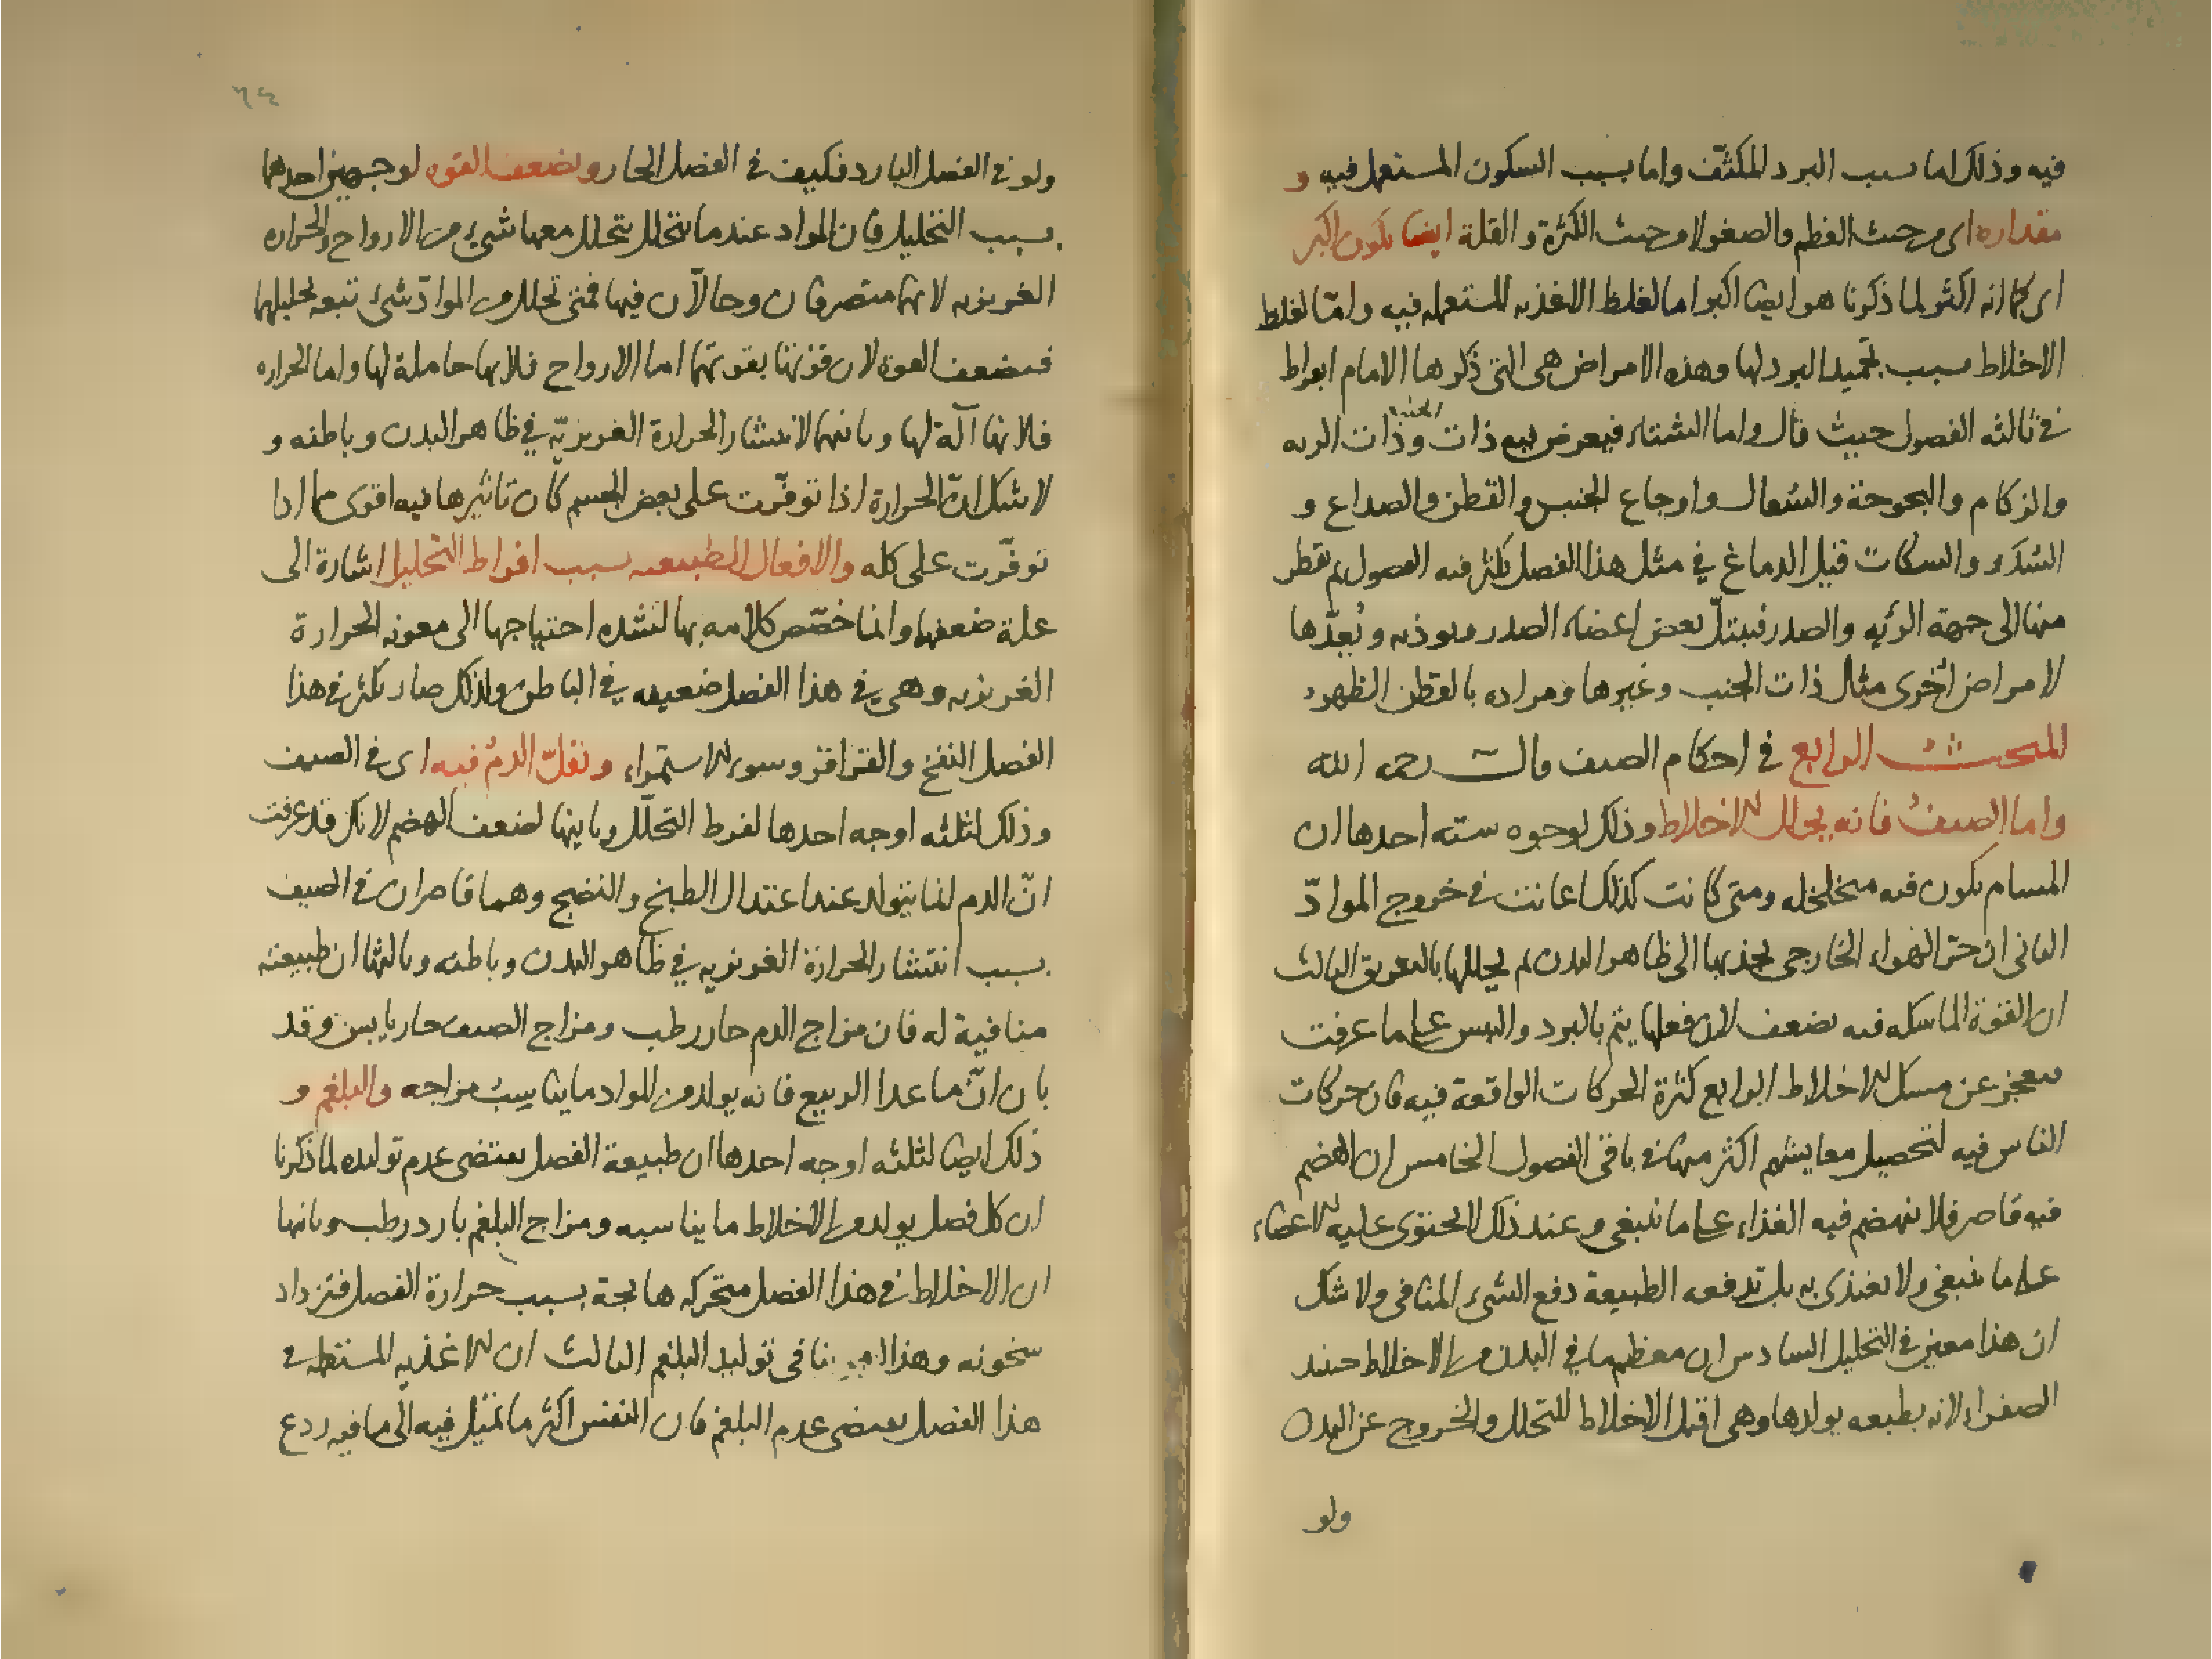 فيه وذلك اما بسبب البرد المكثف واما بسبب السكون المستعمل فيه و
مقداره اى من حيث العظم والصغر لا من حيث الكثرة والقلة ايضا يكون اكبر
اى كما انه اكثر لما ذكرنا هو ايضا اكبر اما لغلظ الاغذيه المستعمله فيه واما لغلظ
الاخلاط بسبب تجميد البرد لها وهذه الامراض هى التى ذكرها الامام ابقراط
فى ثالثه الفصول حيث قال واما الشتاء فيعرض فيه ذات الجنب وذات الريه
والزكام والبحوحة والسعال واوجاع الجنبين والقطن والصداع و
السدر والسكات قيل الدماغ فى مثل هذا الفصل يكثر فيه الفصول ثم يقطر
منها الى جهة الرئه والصدر فيبتل بعض اعضاء الصدر ويوذيه ويعدها
لامراض اخرى مثال ذات الجنب وغيرها ومراده بالقطن الظهر
المبحث الرابع فى احكام الصيف قال رحمه الله
واما الصيف فانه يحلل الاخلاط وذلك لوجوه سته احدها ان
المسام يكون فيه متخلخله ومتى كانت كذلك اعانت فى خروج المواد
الثانى ان حر الهواء الخارجى يجذبها الى ظاهر البدن ثم يحللها بالتعريق الثالث
ان القوة الماسكه فيه يضعف لان فعلها يتم بالبرد واليبس على ما عرفت
فيعجز عن مسك الاخلاط الرابع كثرة الحركات الواقعة فيه فان حركات
الناس فيه لتحصيل معايشهم اكثر منها فى باقى الفصول الخامس ان الهضم
فيه قاصر فلا ينهضم فيه الغذاء على ما ينبغى وعند ذلك لا يحتوى عليه الاعضاء
على ما ينبغى ولا يغتذى به بل تدفعه الطبيعة دفع الشىء المنافى ولا شك
ان هذا معين فى التحليل السادس ان معظم ما فى البدن من الاخلاط حينئذ
الصفراء لانه بطبعه يولدها وهى اقبل الاخلاط للتحلل والخروج عن البدن
ولو
٦٤
ولو فى الفصل البارد فكيف فى الفصل الحار ويضعف القوه لوجهين احدهما
بسبب التحليل فان المواد عندما يتحلل يتحلل معها شىء من الارواح والحراره
الغريزيه لانهما متصرفان وحالان فيها فمتى تحلل من المواد شىء تبعه تحليلهما
فيضعف القوة لان قوتها بقوتهما اما الارواح فلانها حاملة لها واما الحراره
فلانها آلة لها وثانيهما لانتشار الحرارة الغريزية فى ظاهر البدن وباطنه و
لا شك ان الحرارة اذا توفرت على بعض الجسم كان تاثيرها فيه اقوى مما اذا
توفرت على كله والافعال الطبيعيه بسبب افراط التحليل اشارة الى
علة ضعفها وانما خصص كلامه بها لشده احتياجها الى معونه الحرارة
الغريزيه وهى فى هذا الفصل ضعيفه فى الباطن ولذلك صار يكثر فى هذا
الفصل النفخ والقراقر وسوء الاستمراء ويقل الدم فيه اى فى الصيف
وذلك لثلثه اوجه احدها لفرط التحلل وثانيها لضعف الهضم لانك قد عرفت
ان الدم انما يتولد عند اعتدال الطبخ والنضج وهما قاصران فى الصيف
بسبب انتشار الحرارة الغريزيه فى ظاهر البدن وباطنه وثالثها ان طبيعته
منافية له فان مزاج الدم حار رطب ومزاج الصيف حار يابس وقد
بان ان ما عدا الربيع فانه يولد من المواد ما يناسب مزاجه والبلغم و
ذلك ايضا لثلثه اوجه احدها ان طبيعة الفصل يقتضى عدم توليده لما ذكرنا
ان كل فصل يولد من الاخلاط ما يناسبه ومزاج البلغم بارد رطب وثانيها
ان الاخلاط فى هذا الفصل متحركه هائجة بسبب حرارة الفصل فتزداد
سخونه وهذا ينافى توليد البلغم الثالث ان الاغذيه المستعمله فى
هذا الفصل يقتضى عدم البلغم فان النفس اكثر ما تميل فيه الى ما فيه ردع